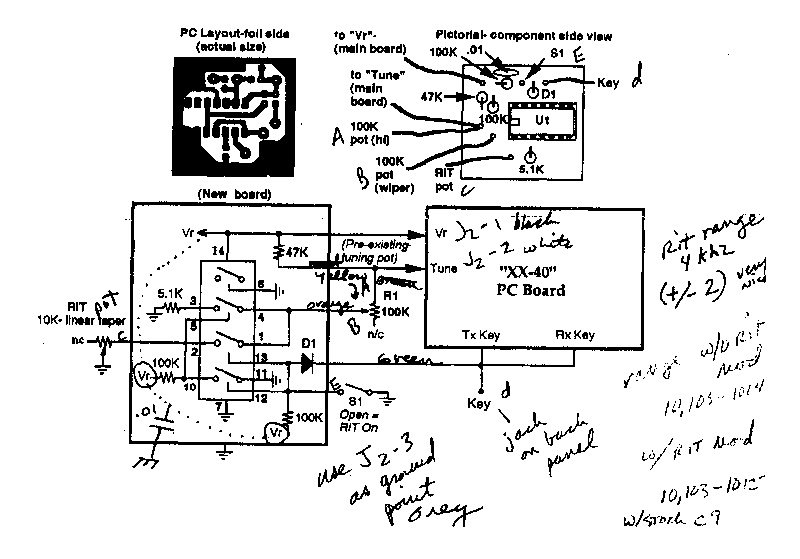 PC Layout-foil side
(actual size)
to "Vr"-
(main board)
Pictorial- component side view
100K
.01
S1
E
to "Tune"
(main
board)
Key
d
47K
D1
100K
U1
A
100K
pot (hi)
B
100K
pot
(wiper)
RIT
pot
C
5.1K
(New board)
Vr
14
47K
(Pre-existing
tuning pot)
Vr
J2-1 black
Tune
J2-2 white
"XX-40"
PC Board
Yellow
A
R1
100K
orange
B
n/c
6
5.1K
3
4
5
RIT
pot
10K- linear taper
nc
C
2
1
13
D1
Green
Tx Key
Rx Key
100K
Vr
10
11
12
7
E
S1
Open =
RIT On
100K
Vr
.01
Key
d
jack
on back
panel
use J2-3
as ground
point
Grey
Rit range
4 khz
(+/- 2) very
nice
range w/o RIT
Mod
w/ RIT Mod
w/stock C9